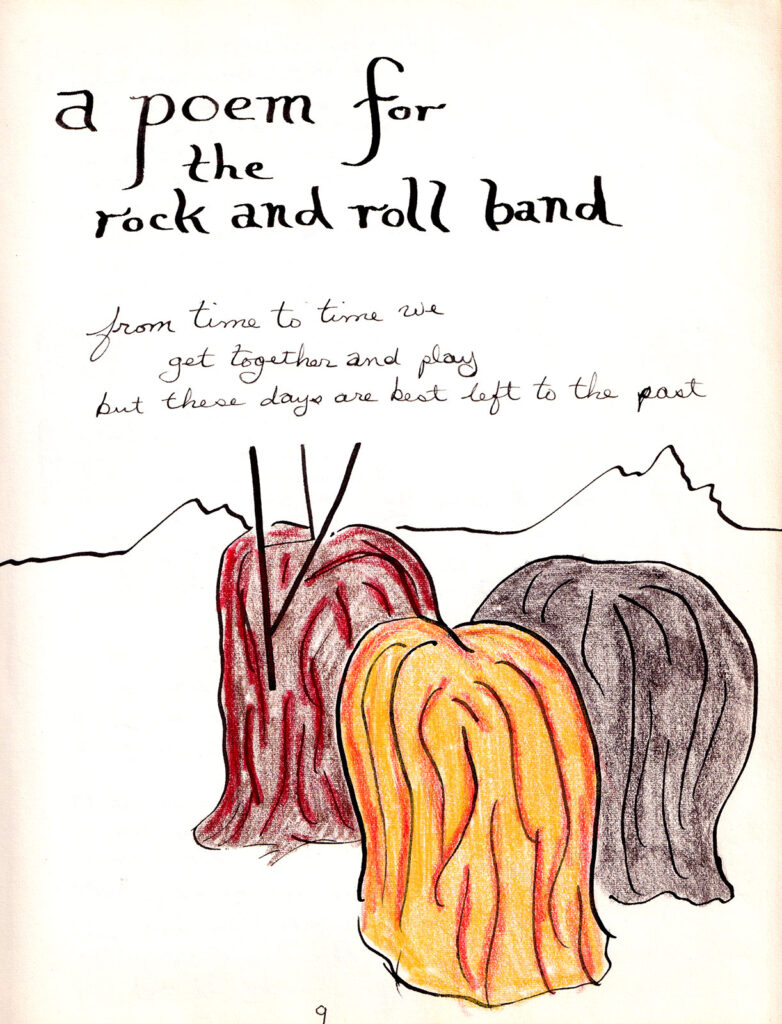 a poem for
the
rock and roll band
from time to time we
get together and play
but these days are best left to the past
9